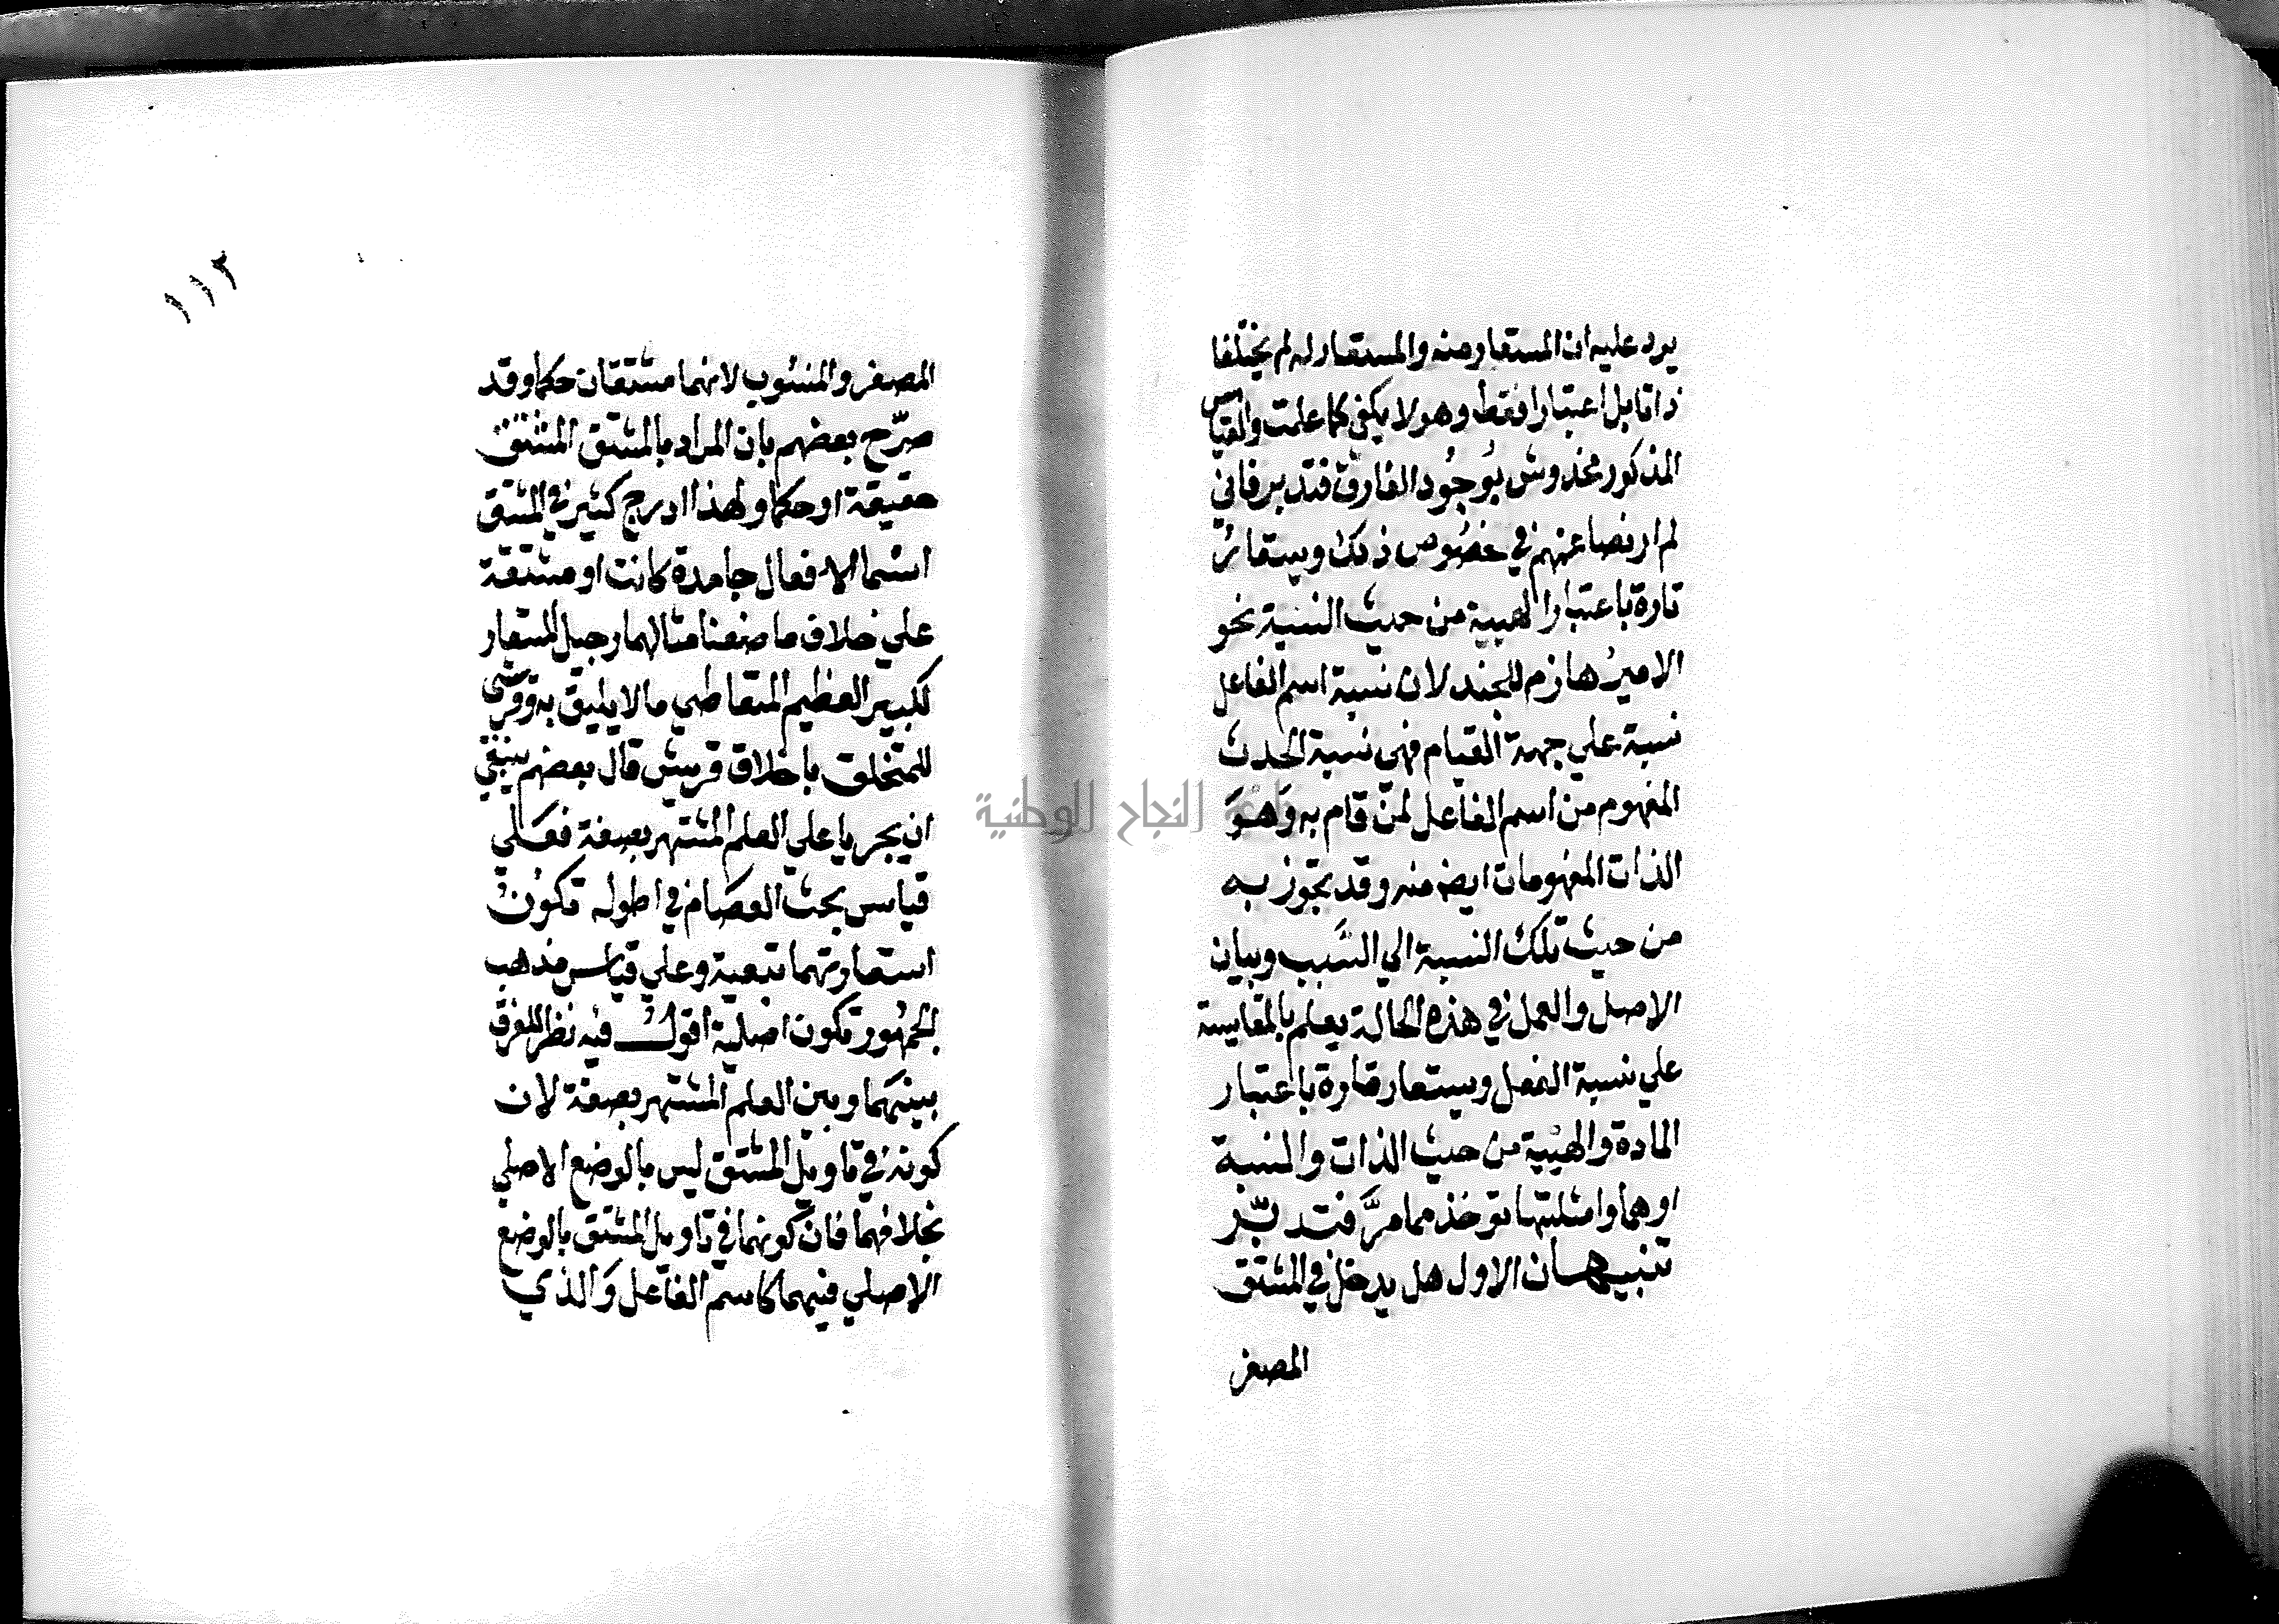 يرد عليه ان المستعار منه والمستعار له لم يختلفا
ذاتا بل اعتبارا فقط وهو لا يكفي كما علمت والقياس
المذكور مخدوش بوجود الفارق فتدبر فاني
لم ار نصا عنهم في خصوص ذلك ويستعار
تارة باعتبار الهيية من حيث النسبة نحو
الامير هازم للجند لان نسبة اسم الفاعل
نسبة علي جهة القيام فهي نسبة الحدث
المفهوم من اسم الفاعل لمن قام به وهو
الذات المفهومات ايضا منه وقد تجوز به
من حيث تلك النسبة الي السبب وبيان
الاصل والعمل في هذه الحالة يعلم بالمقايسة
علي نسبة الفعل ويستعار تارة باعتبار
المادة والهيية من حيث الذات والنسبة
او هما وامثلتها توخذ مما مر فتدبر
تنبيهان الاول هل يدخل في المشتق
المصغر
١١٢
المصغر والمنسوب لانهما مشتقان حكما وقد
صرح بعضهم بان المراد بالمشتق المشتق
حقيقة او حكما ولهذا ادرج كثير في المشتق
اسما الافعال جامدة كانت او مشتقة
علي خلاف ما صنعنا مثالهما رجيل المستعار
لكبير العظيم المتعاطي ما لا يليق به وقرشي
للمتخلق باخلاق قريش قال بعضهم ينبغي
ان يجريا علي العلم المشتهر بصفة فعلي
قياس بحث العصام في اطوله تكون
استعارتهما تبعية وعلي قياس مذهب
الجمهور تكون اصلية اقول فيه نظر للفرق
بينهما وبين العلم المشتهر بصفة لان
كونه في تاويل المشتق ليس بالوضع الاصلي
بخلافهما فان كونهما في تاويل المشتق بالوضع
الاصلي فيهما كاسم الفاعل والذي
النجاح الوطنية